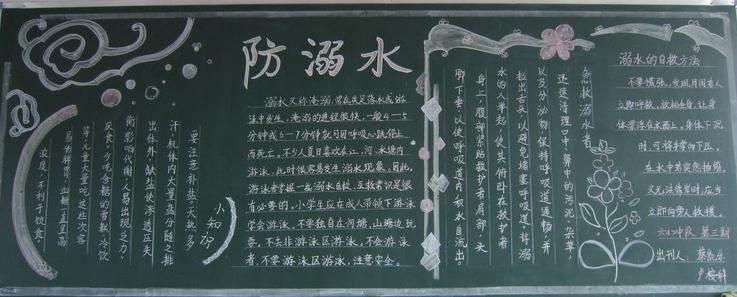 防溺水
溺水又称淹溺,常在失足落水或游
泳中发生,淹溺的进程很快,一般4—5
分钟或6—7分钟就可因呼吸心跳停止
而死亡。不少人夏日喜欢在江、河、水塘内
游泳,此时很容易发生溺水现象。因此,
游泳者掌握一些溺水自救,互救知识是很
有必要的,小学生应在成人带领下游泳
学会游泳。不要独自在河塘,山塘边玩
耍。不去非游泳区游泳。不会游泳
者,不要游泳区游泳,注意安全。
小知识
要注意补盐:天热多
汗,机体内大量盐分随之排
出体外,缺盐使渗透压失
衡影响代谢,人易出现乏力、
厌食。少吃过糖的膏糕冷饮
等:儿童大量吃这些次容
易伤脾胃,血糖一直呈高
浓度,不利于饮食。
急救溺水者
迅速清理口中、鼻中的污泥、杂草,
以及分泌物保持呼吸道通畅,并
拉出舌头,以避免堵塞呼吸道。将溺
水的人举起,使其俯卧在救护者
身上,腹部紧贴救护者肩部,头
脚下垂,以使呼吸道内积水自流出。
溺水的自救方法
不要慌张,发现周围有人
立即呼救,放松全身,让身
体漂浮在水面上。身体下沉
时,可将手掌向下压。
在水中若突然抽筋,
又无法靠岸时,应当
立即向旁人救援。
六小中队 第三期
出刊人: